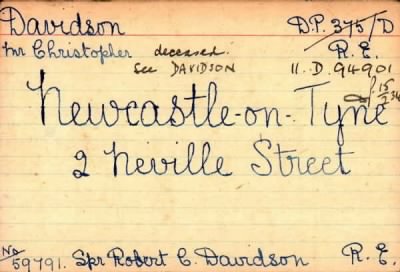 Davidson D.P. 375/D
Mr Christopher deceased. R.E.
See DAVIDSON 11.D.94901
Newcastle-on-Tyne
2 Neville Street
No 59791. Spr Robert C. Davidson R.E.